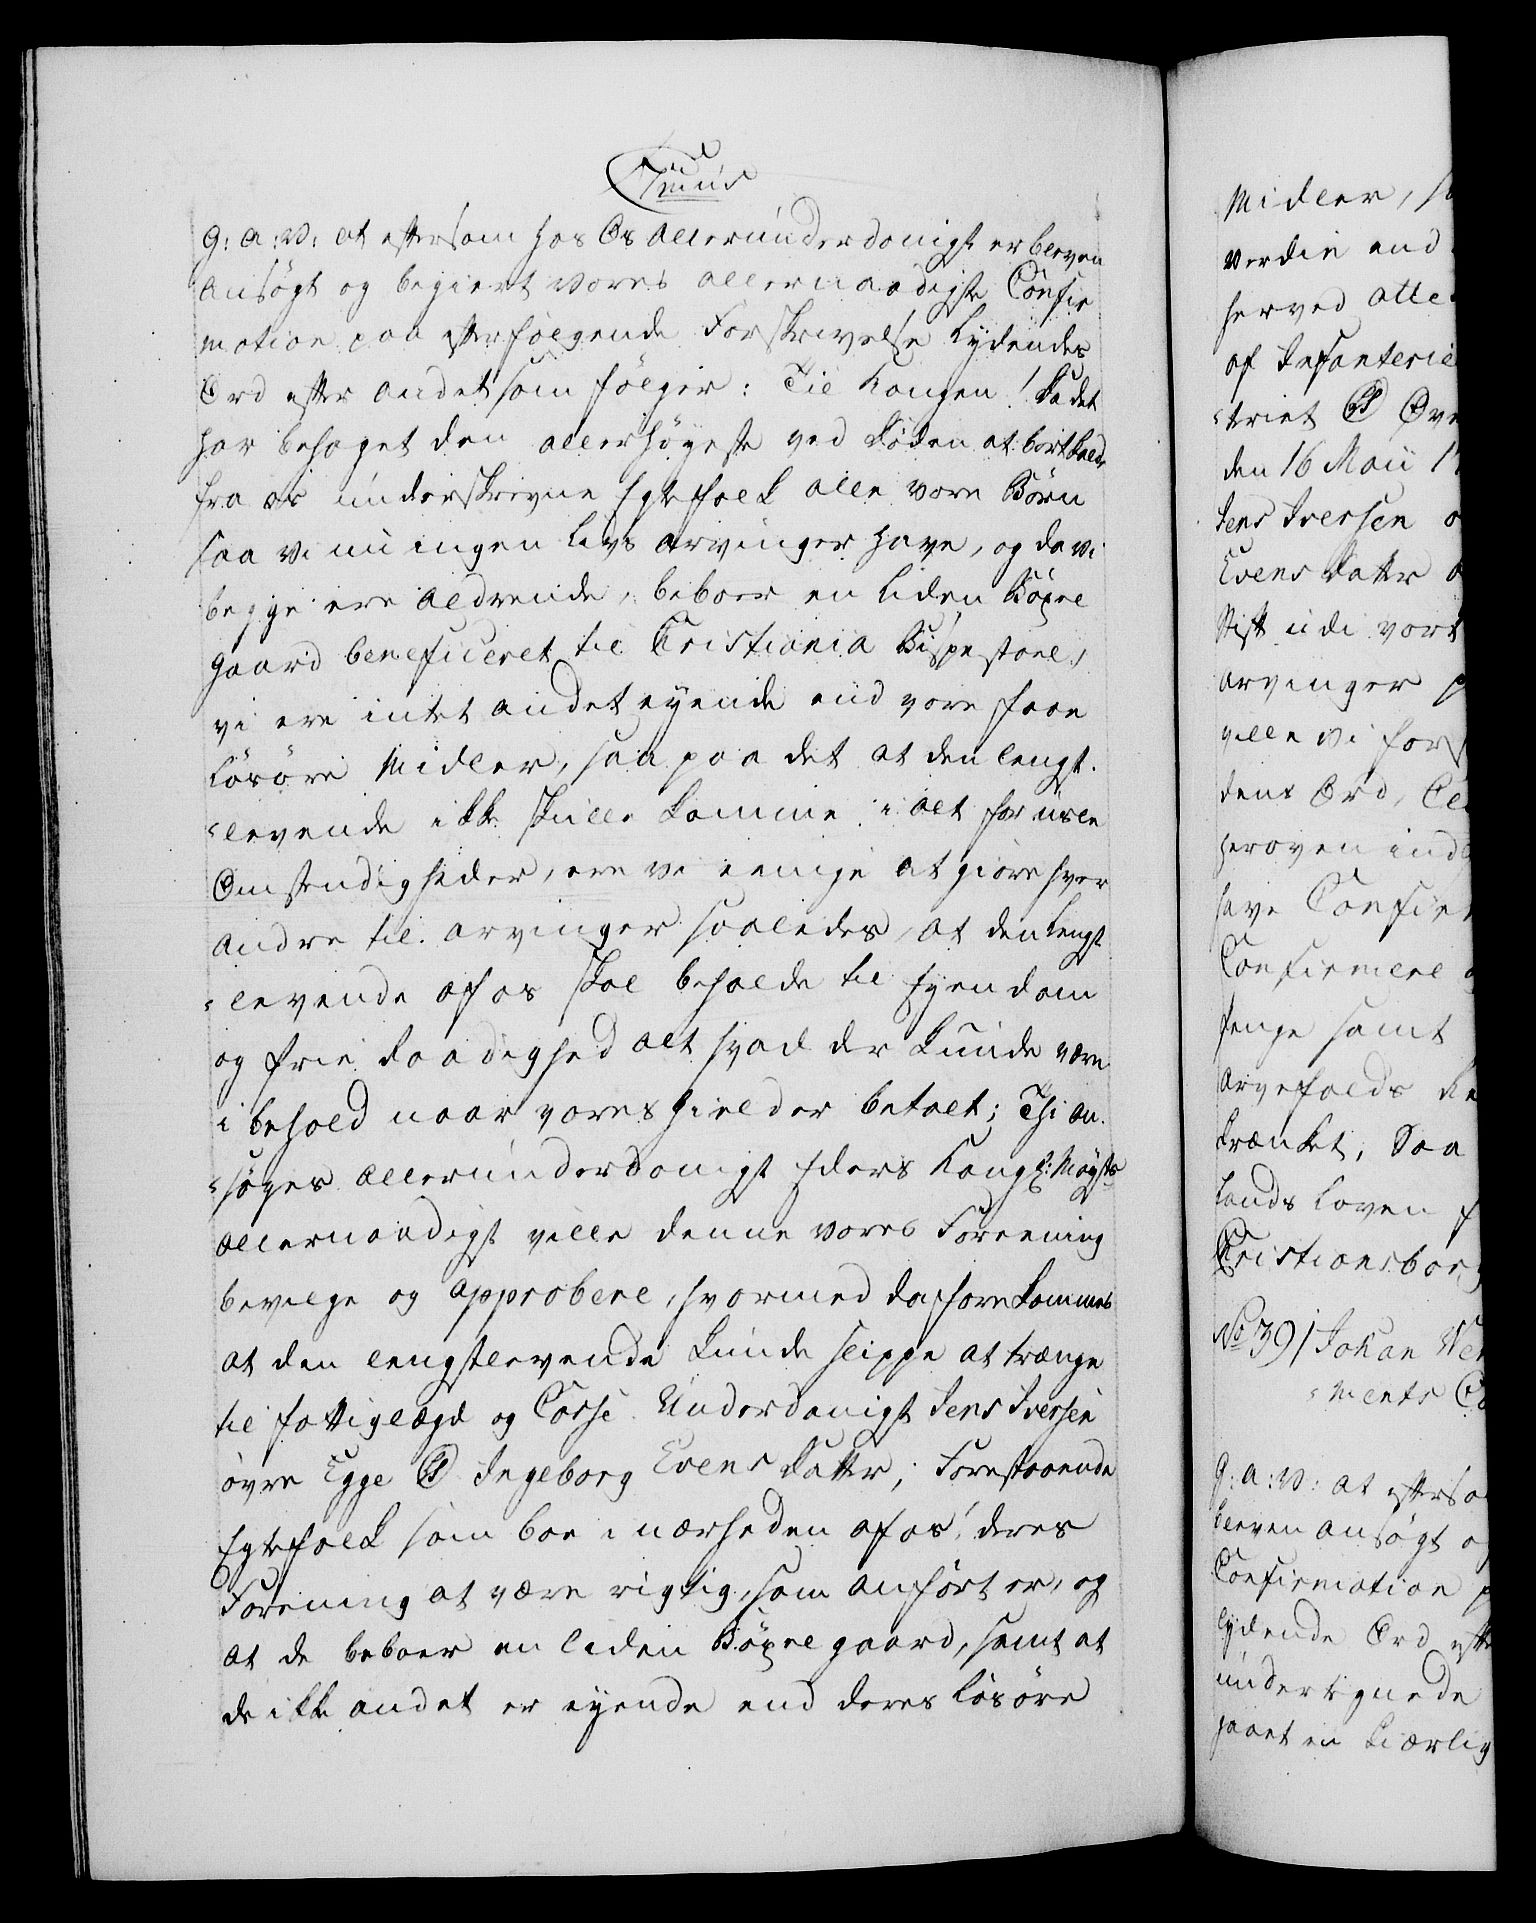 Junius
G: A: V: at eftersom hos Os allerunderdanigst er bleven
ansøgt og begiert vores allernaadigste Confir
mation paa efterfølgende Forskrivelse lydendes
Ord efter andet som følger: Til Kongen! Da det
har behaget den allerhøyeste ved Døden at bortkalde
fra os underskrevne Egtefolk alle vore Børn
saa vi nu ingen Livs arvinger have, og da vi
begge ere aldrende, beboer en liden Bøxel
gaard beneficeret til Cristiania Bispestoel,
vi ere intet andet eyende end vore faae
løsøre Midler, saa paa det at den lengst-
levende ikke skulle komme i alt for usle
Omstendigheder, ere vi eenige at giøre hver
andre til arvinger saaledes, at den lengst
levende af os skal beholde til Eyendom
og frie Raadighed alt hvad der kunde være
i behold naar vores Gield er betalt; Thi an-
søges allerunderdanigst Eders Kongl: Mayts
allernaadigst ville denne vores Foreening
bevilge og approbere, hvormed da forekommes
at den lengstlevende kunde slippe at trænge
til fattiglægd og Casse. Underdanigst Jens Iversen
øvre Egge & Ingeborg Evens Datter; Forestaaende
Egtefolk som boe i nærheden af os, deres
Forening at være rigtig, som anført er, og
at de beboer en liden Bøxel gaard, samt at
de ikke andet er eyende end deres løsøre
Midler, s
verdie end
herved atte
af Infanterie
triet & Øve
den 16 Maii 1
Jens Iversen o
Evens Datter
Stift udi vort
arvinger p
ville vi for
dens Ord, Cl
heroven ind
have Confir
Confirmere
fenge samt
Arvefalds
krænket, Saa
Lands Loven f
Cristiansborg
No 39/ Johan We
ments C
G: A: V: at efterso
bleven ansøgt og
Confirmation p
lydende Ord efte
undertegnede
havt en kiærlig